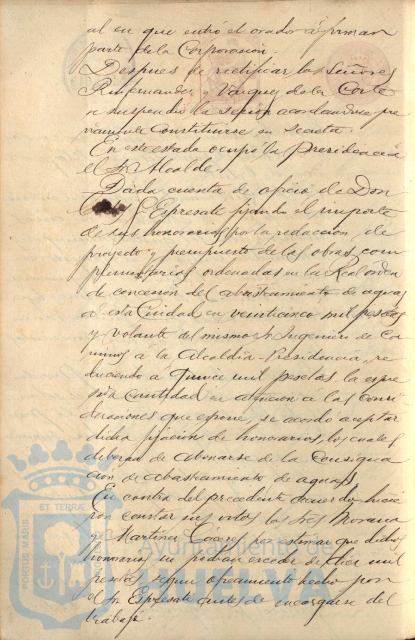 al en que entró el orador á formar
parte de la Corporación.
Despues de rectificar los Señores
Rufernandez y Vazquez de la Corte
se suspendió la sesion acordandose pre
viamente Constituirse en secreta.
En este estado ocupó la Presidencia
el Sr. Alcalde.
Dada cuenta de oficio de Don
Espresate fijando el importe
de sus honorarios por la redaccion de
proyecto y presupuesto de las obras com
plementarias ordenadas en la Real órden
de concesion del abastecimiento de aguas
á esta Ciudad en veinticinco mil pesetas
y volante del mismo Sr. Ingeniero de Ca
minos á la Alcaldia-Presidencia, re
duciendo á quince mil pesetas la espre
sada cantidad en atencion á las Consi
deraciones que espone, se acordó aceptar
dicha fijacion de honorarios, los cuales
deberan de abonarse de la Consigna
cion de abastecimiento de aguas.
En contra del precedente acuerdo hicie
ron constar sus votos los Sres. Morano
y Martinez por estimar que dichos
honorarios no podian esceder de diez mil
pesetas segun ofrecimiento hecho por
el Sr. Espresate antes de encargarse del
trabajo.
PORTUS MARIS ET TERRÆ
Ayuntamiento de
HUELVA